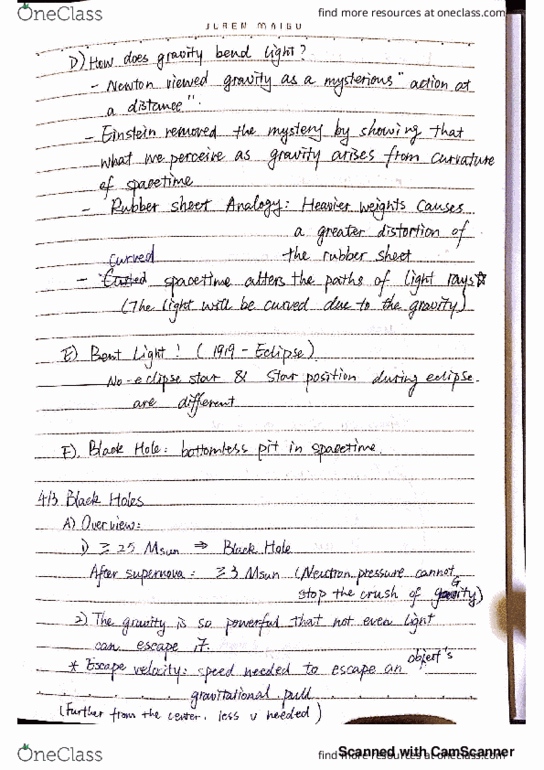 OneClass
find more resources at oneclass.com
D) How does gravity bend light?
- Newton viewed gravity as a mysterious "action at
a distance".
- Einstein removed the mystery by showing that
what we perceive as gravity arises from curvature
of spacetime
- Rubber sheet Analogy: Heavier weights causes
a greater distortion of
the rubber sheet
curved
- spacetime alters the paths of light rays☆
(The light will be curved due to the gravity)
E) Bent Light! (1919 - Eclipse)
No-eclipse star & Star position during eclipse.
are different
F). Black Hole: bottomless pit in spacetime.
4/3 Black Holes
A) Overview:
1) ≥ 25 Msun ⇒ Black Hole
After supernova: ≥3 Msun (Neutron pressure cannot
stop the crush of G)
2) The gravity is so powerful that not even light
can escape it.
* Escape velocity: speed needed to escape an object's
gravitational pull
(Further from the center. less v needed)
OneClass
find more resources at oneclass.com
Scanned with CamScanner